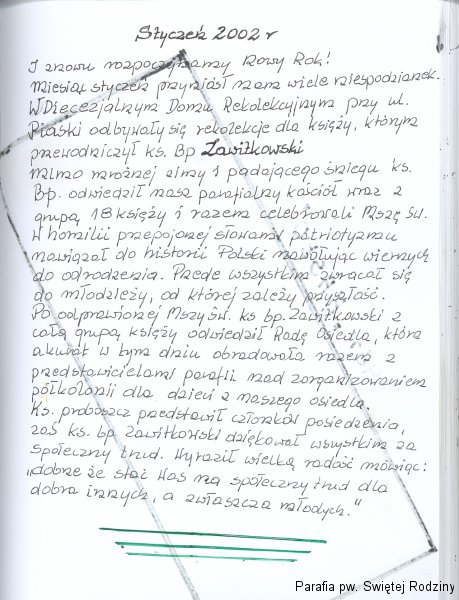 Styczeń 2002 r
I znowu rozpoczynamy Nowy Rok!
Miesiąc styczeń przyniósł nam wiele niespodzianek.
W Diecezjalnym Domu Rekolekcyjnym przy ul.
Piaski odbywały się rekolekcje dla księży, którym
przewodniczył ks. Bp Zawitkowski
Mimo mroźnej zimy i padającego śniegu ks.
Bp. odwiedził nasz parafialny kościół wraz z
grupą 18 księży i razem celebrowali Mszę św.
W homilii przepojonej słowami patriotyzmu
nawiązał do historii Polski nawołując wiernych
do odrodzenia. Przede wszystkim zwracał się
do młodzieży, od której zależy przyszłość.
Po odprawionej Mszy św. ks bp. Zawitkowski z
całą grupą księży odwiedził Radę Osiedla, która
akurat w tym dniu obradowała razem z
przedstawicielami parafii nad zorganizowaniem
półkolonii dla dzieci z naszego osiedla.
Ks. proboszcz przedstawił członków posiedzenia,
zaś ks. bp Zawitkowski dziękował wszystkim za
społeczny trud. Wyraził wielką radość mówiąc:
„dobrze że stać Was na społeczny trud dla
dobra innych, a zwłaszcza młodych."
Parafia pw. Świętej Rodziny